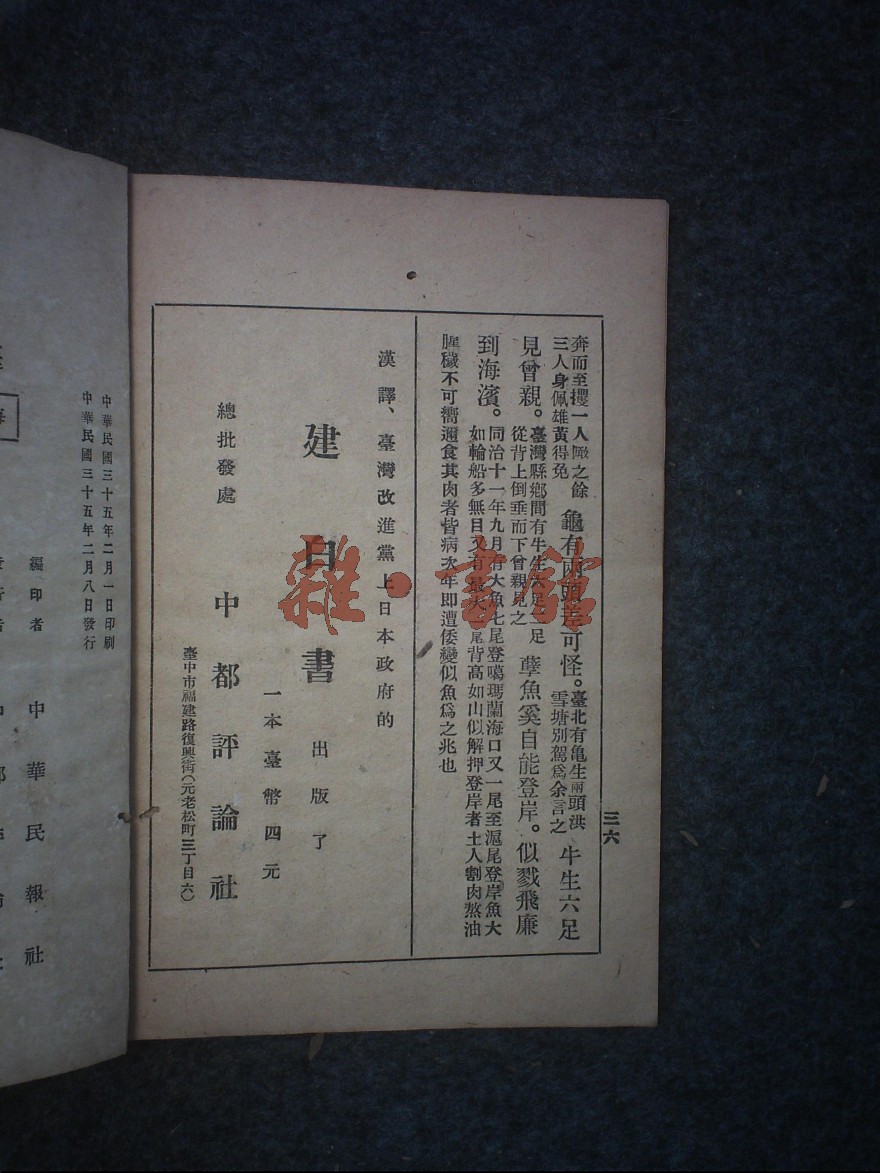 三六
奔而至攫一人啖之餘
三人身佩雄黃得免
龜有兩頭差可怪。
臺北有亀生兩頭洪
雪塘別駕為余言之
牛生六足
見曾親。
臺灣縣鄉間有牛生六足二足
從背上倒垂而下曾親見之
孽魚奚自能登岸。似戮飛廉
到海濱。
同治十一年九月有大魚七尾登噶瑪蘭海口又一尾至滬尾登岸魚大
如輪船多無目又有最大一尾背高如山似解押登岸者土人割肉熬油
腥穢不可嚮邇食其肉者皆病次年即遭倭變似魚為之兆也
漢譯、臺灣改進黨上日本政府的
建白書
出版了
一本臺幣四元
總批發處
中都評論社
臺中市福建路復興街(元老松町三丁目六)
中華民國三十五年二月一日印刷
中華民國三十五年二月八日發行
編印者
中華民報社
雜·書館